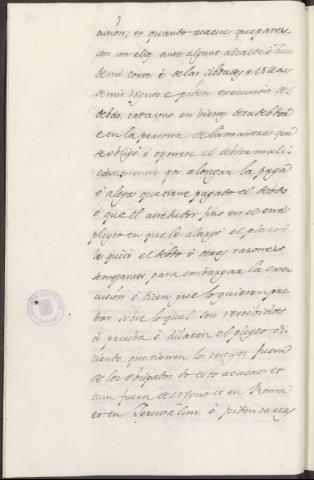 ucion; et quando acaece que parez
can con ellos ante algunt alcalde ó Jues
de mi corte é de las cibdades é Villas
de mis Regnos e piden execucion del
debdo, vasta uno en bienes del debdor
e en la persona de la manera que
se obligó é oponese el debdor mali-
ciosamente por alongar la paga
é alega que tiene pagado el debdo
ó que el acrehedor fizo en el
pleyto en que le alargó el plazo ó
le quitó el debdo ó otras razones
semejantes para embargar la exe
cución é dicen que lo quieren pro
bar sobre lo qual son recebidos
á prueba é dilatan el pleyto di
ciendo que tienen los testigos fuera
de los Obispados do esto acaece et
aun fuera del Regno et en Roma
et en Jerusalem, é piden cartas